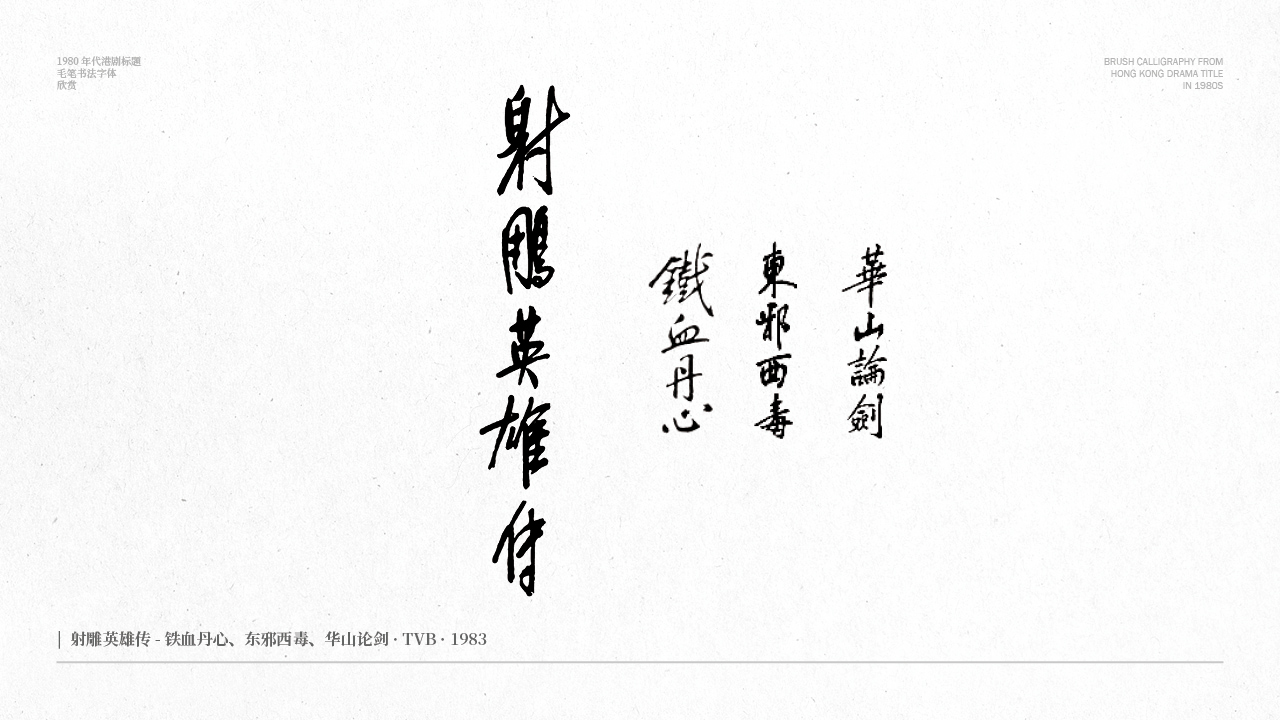 1980 年代港剧标题
毛笔书法字体
欣赏
BRUSH CALLIGRAPHY FROM
HONG KONG DRAMA TITLE
IN 1980S
射鵰英雄傳
鐵血丹心
東邪西毒
華山論劍
| 射雕英雄传 - 铁血丹心、东邪西毒、华山论剑 · TVB · 1983